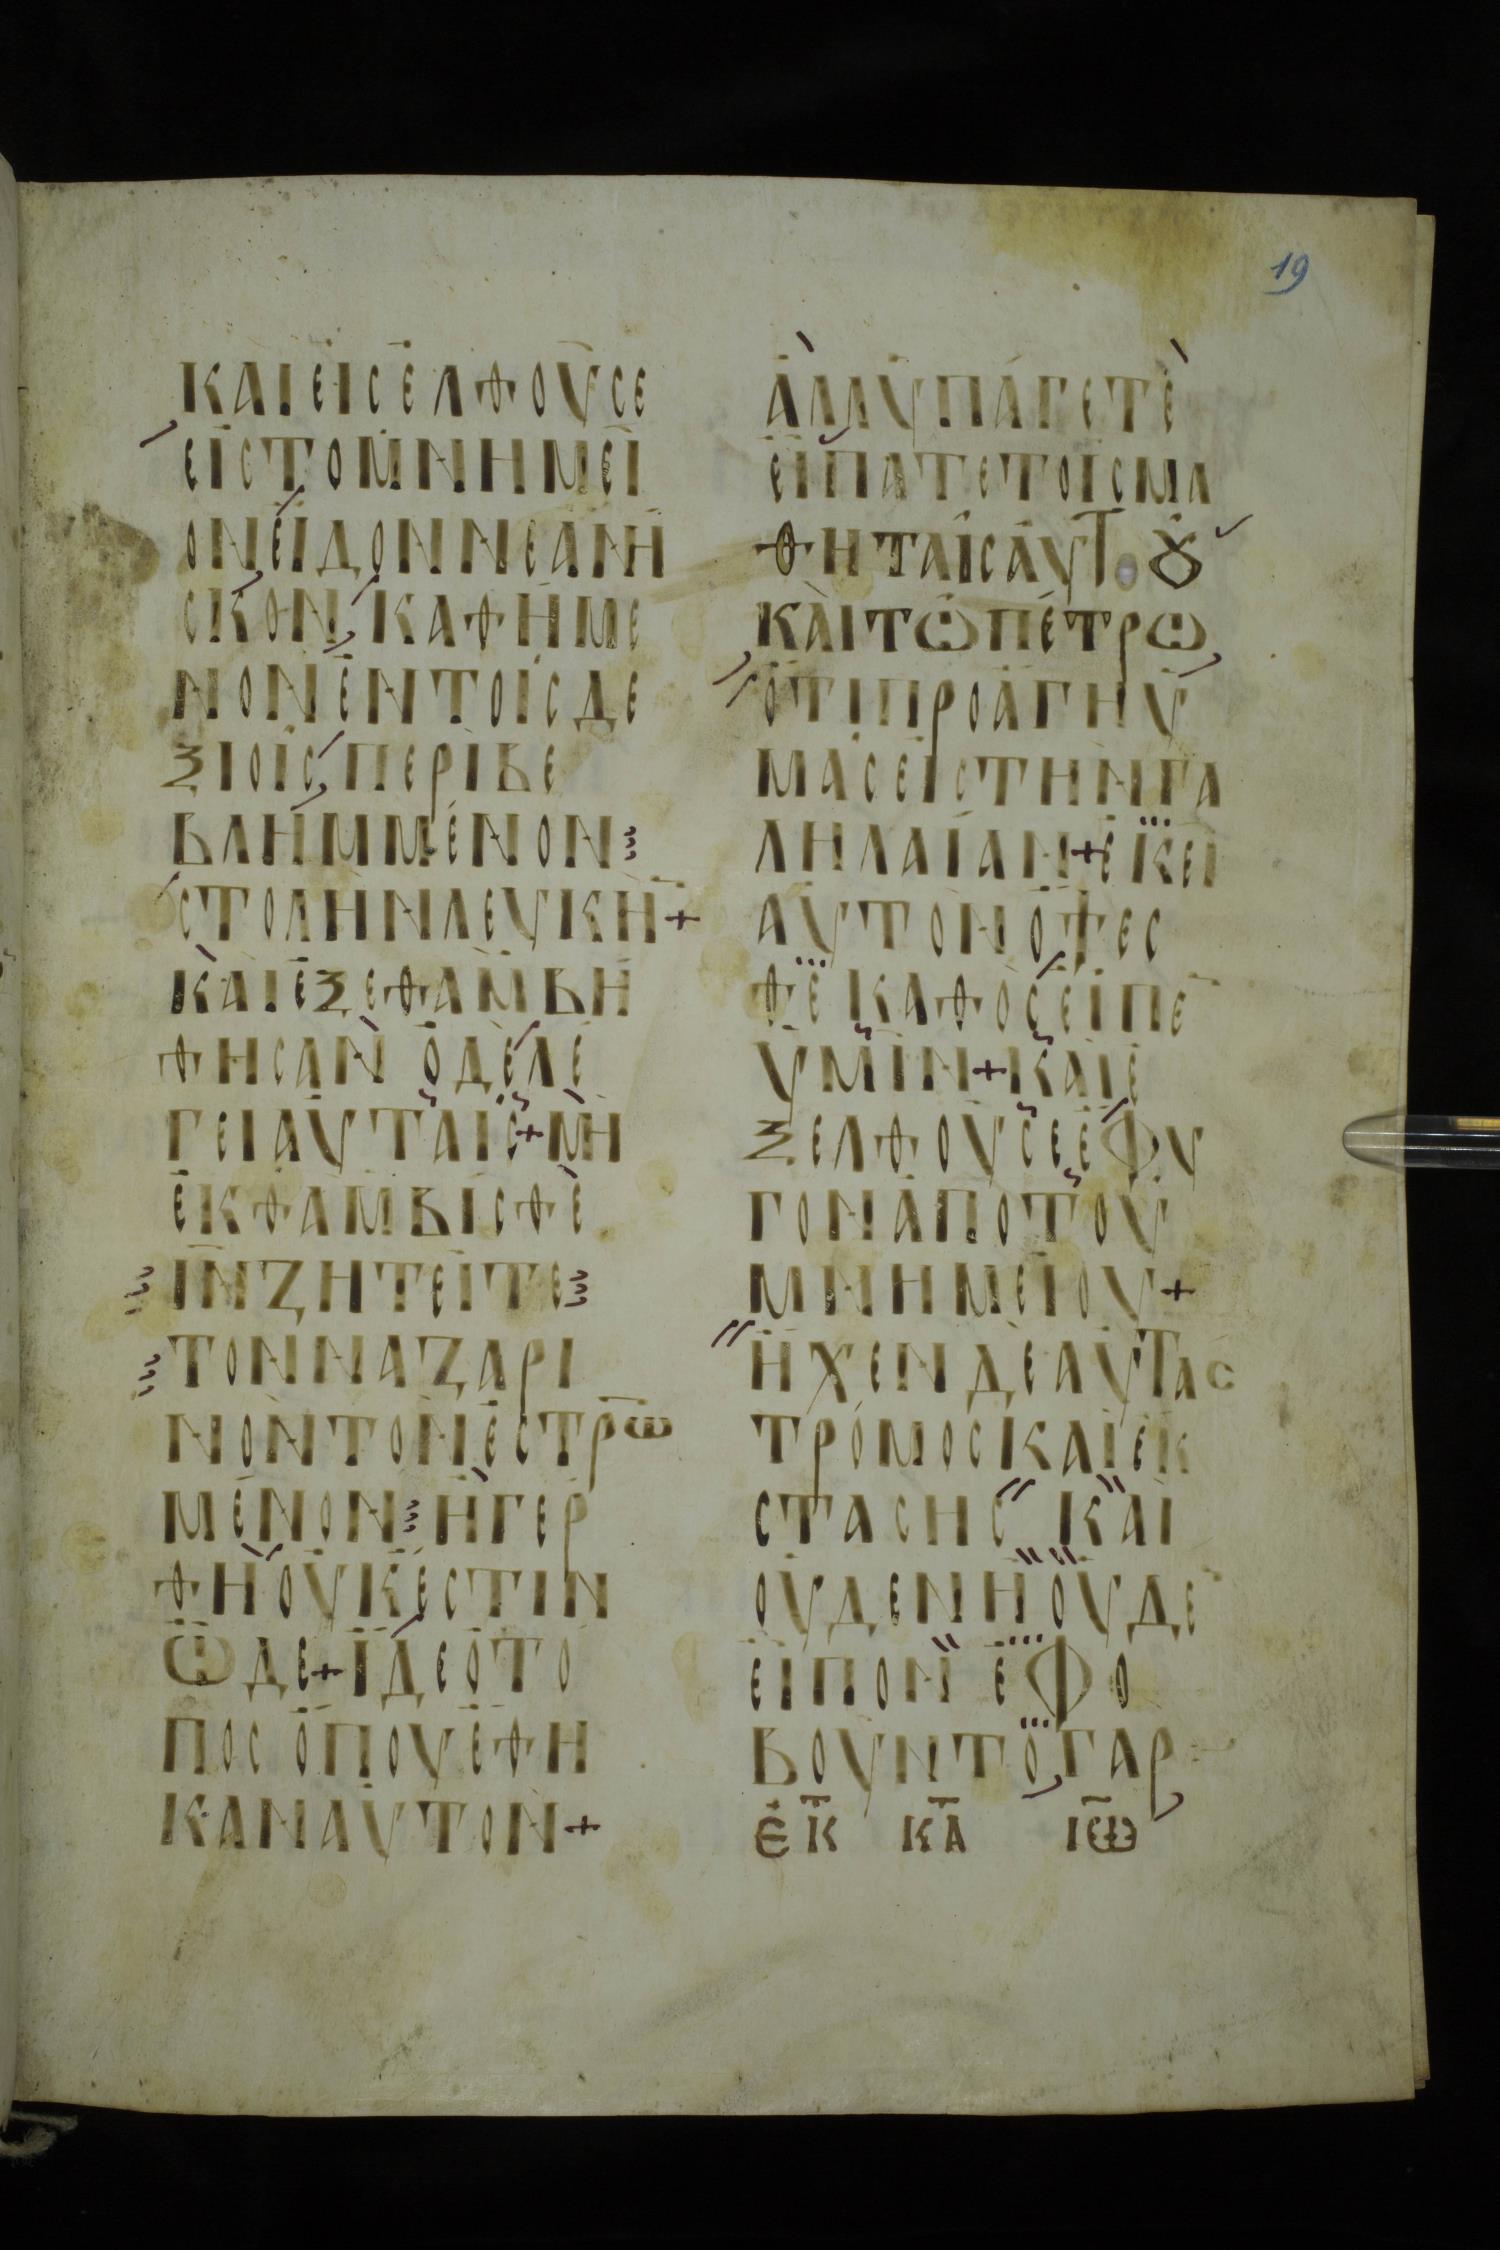 19
ΚΑΙΕΙΣΕΛΘΟΥΣΕ
ΕΙΣΤΟΜΝΗΜΕΙ
ΟΝΕΙΔΟΝΝΕΑΝΗ
ΣΚΟΝΚΑΘΗΜΕ
ΝΟΝΕΝΤΟΙΣΔΕ
ΞΙΟΙΣΠΕΡΙΒΕ
ΒΛΗΜΜΕΝΟΝ
ΣΤΟΛΗΝΛΕΥΚΗ+
ΚΑΙΕΞΕΘΑΜΒΗ
ΘΗΣΑΝ ΟΔΕΛΕ
ΓΕΙΑΥΤΑΙΣ+ΜΗ
ΕΚΘΑΜΒΙΣΘΕ
ΙΝΖΗΤΕΙΤΕ
ΤΟΝΝΑΖΑΡΙ
ΝΟΝΤΟΝΕΣΤΡΩ
ΜΕΝΟΝ ΗΓΕΡ
ΘΗΟΥΚΕΣΤΙΝ
ΩΔΕ+ΙΔΕΟΤΟ
ΠΟΣ ΟΠΟΥΕΘΗ
ΚΑΝΑΥΤΟΝ+
ΑΛΛΥΠΑΓΕΤΕ
ΕΙΠΑΤΕΤΟΙΣΜΑ
ΘΗΤΑΙΣΑΥΤΟΥ
ΚΑΙΤΩΠΕΤΡΩ
ΟΤΙΠΡΟΑΓΗΥ
ΜΑΣΕΙΣΤΗΝΓΑ
ΛΗΛΑΙΑΝ+ΕΚΕΙ
ΑΥΤΟΝΟΨΕΣ
ΘΕ ΚΑΘΟΣΕΙΠΕ
ΥΜΙΝ+ΚΑΙΕ
ΞΕΛΘΟΥΣΕΕΦΥ
ΓΟΝΑΠΟΤΟΥ
ΜΝΗΜΕΙΟΥ+
ΗΧΕΝΔΕΑΥΤΑΣ
ΤΡΟΜΟΣΚΑΙΕΚ
ΣΤΑΣΗΣ ΚΑΙ
ΟΥΔΕΝΗΟΥΔΕ
ΕΙΠΟΝ ΕΦΟ
ΒΟΥΝΤΟΓΑΡ
ΕΚ ΚΑ ΙΩ